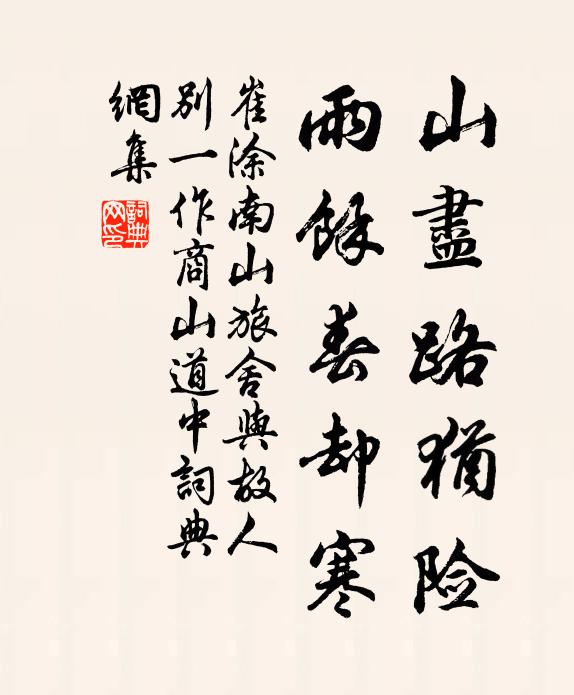 山盡路猶险
雨餘春却寒
崔涂南山旅舍與故人
別一作商山道中詞典
網集
詞典
网印